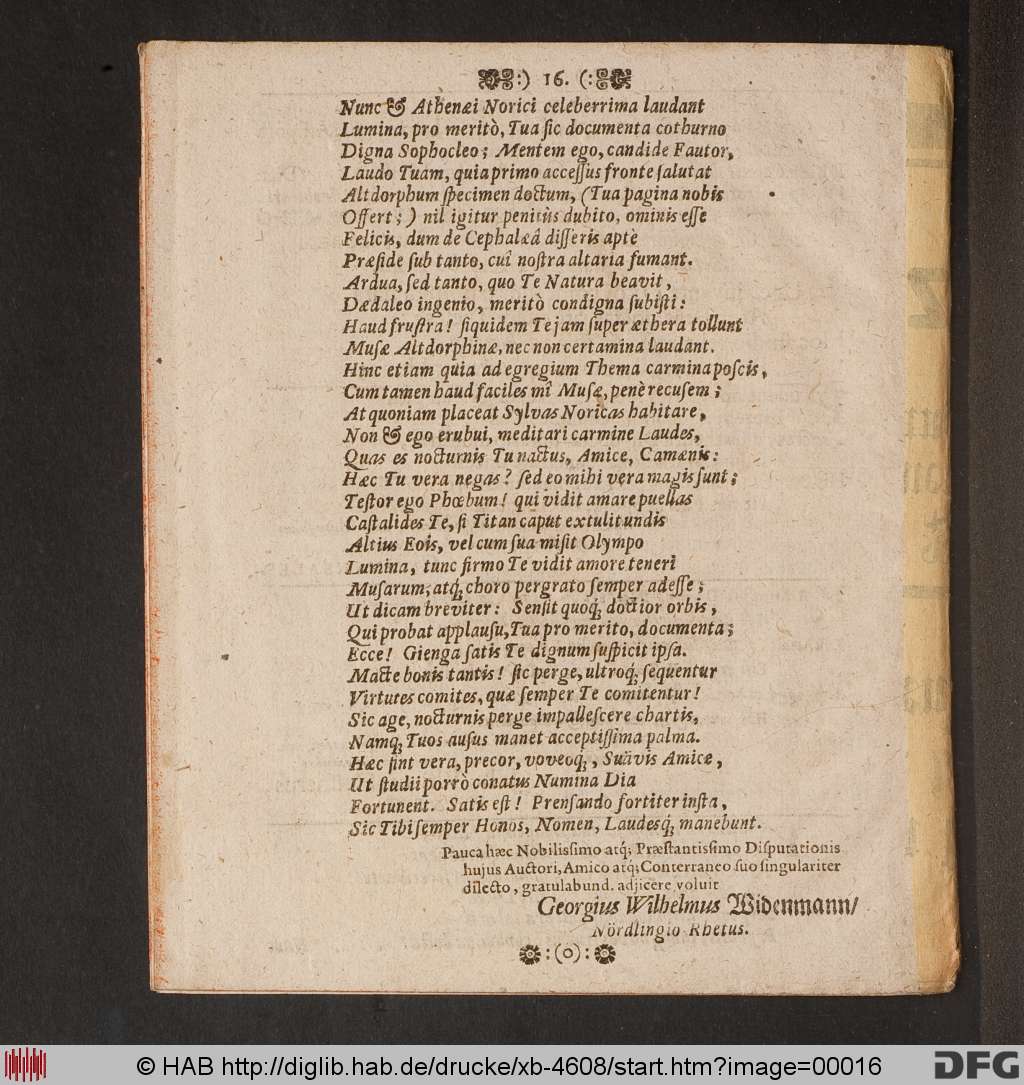 :) 16. (:
Nunc & Athenæi Norici celeberrima laudant
Lumina, pro meritò, Tua ſic documenta cothurno
Digna Sophocleo; Mentem ego, candide Fautor,
Laudo Tuam, quia primo acceſſus fronte ſalutat
Altdorphum ſpecimen doctum, (Tua pagina nobis
Offert;) nil igitur penitùs dubito, ominis eſſe
Felicis, dum de Cephalæâ diſſeris aptè
Præſide ſub tanto, cuî noſtra altaria fumant.
Ardua, ſed tanto, quo Te Natura beavit,
Dædaleo ingenio, meritò condigna ſubiſti:
Haud fruſtra! ſiquidem Te jam ſuper æthera tollunt
Muſæ Altdorphinæ, nec non certamina laudant.
Hinc etiam quia ad egregium Thema carmina poſcis,
Cum tamen haud faciles mî Muſæ, penè recuſem;
At quoniam placeat Sylvas Noricas habitare,
Non & ego erubui, meditari carmine Laudes,
Quas es nocturnis Tu nactus, Amice, Camænis:
Hæc Tu vera negas? ſed eo mihi vera magis ſunt;
Teſtor ego Phœbum! qui vidit amare puellas
Caſtalides Te, ſi Titan caput extulit undis
Altius Eois, vel cum ſua miſit Olympo
Lumina, tunc firmo Te vidit amore teneri
Muſarum, atq; choro pergrato ſemper adeſſe;
Ut dicam breviter: Senſit quoq; doctior orbis,
Qui probat applauſu, Tua pro merito, documenta;
Ecce! Gienga ſatis Te dignum ſuſpicit ipſa.
Macte bonis tantis! ſic perge, ultroq; ſequentur
Virtutes comites, quæ ſemper Te comitentur!
Sic age, nocturnis perge impalleſcere chartis,
Namq; Tuos auſus manet acceptiſſima palma.
Hæc ſint vera, precor, voveoq;, Suävis Amice,
Ut ſtudii porrò conatus Numina Dia
Fortunent. Satis eſt! Prenſando fortiter inſta,
Sic Tibi ſemper Honos, Nomen, Laudesq; manebunt.
Pauca hæc Nobiliſſimo atq; Præſtantiſſimo Diſputationis
hujus Auctori, Amico atq; Conterraneo ſuo ſingulariter
dilecto, gratulabund. adjicere voluit
Georgius Wilhelmus Widenmann/
Nördlingiô Rhetus.
:(o):
© HAB http://diglib.hab.de/drucke/xb-4608/start.htm?image=00016
DFG